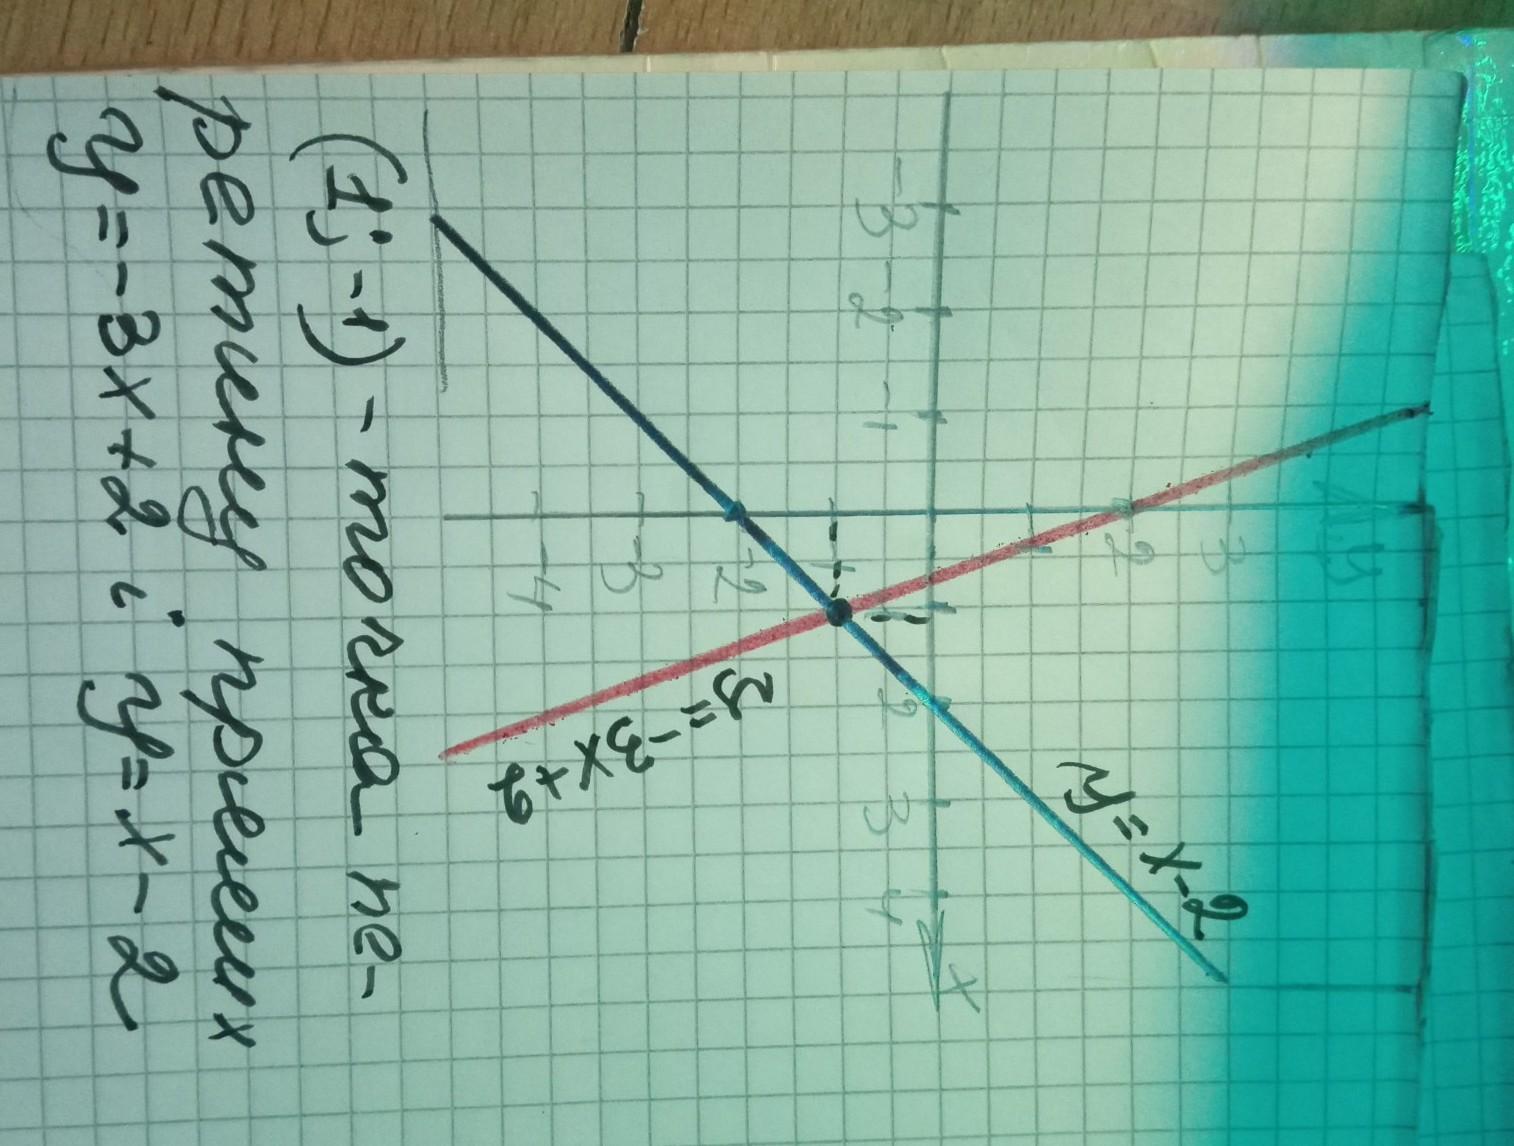 y
3
y = x - 2
2
1
-3 -2 -1 1 2 3 4 x
-1
-2
y = -3x + 2
-3
-4
(1; -1) - точка пе-
ретину прямих
y = -3x + 2 і y = x - 2